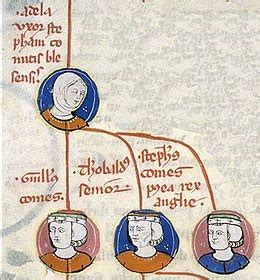 ·adela
uxor ste
phani co
mitis ble
sensis·
Guillˢ
comes·
Thobaldˢ
senior·
Stephˢ
comes
⁊ ea rex
anglie·